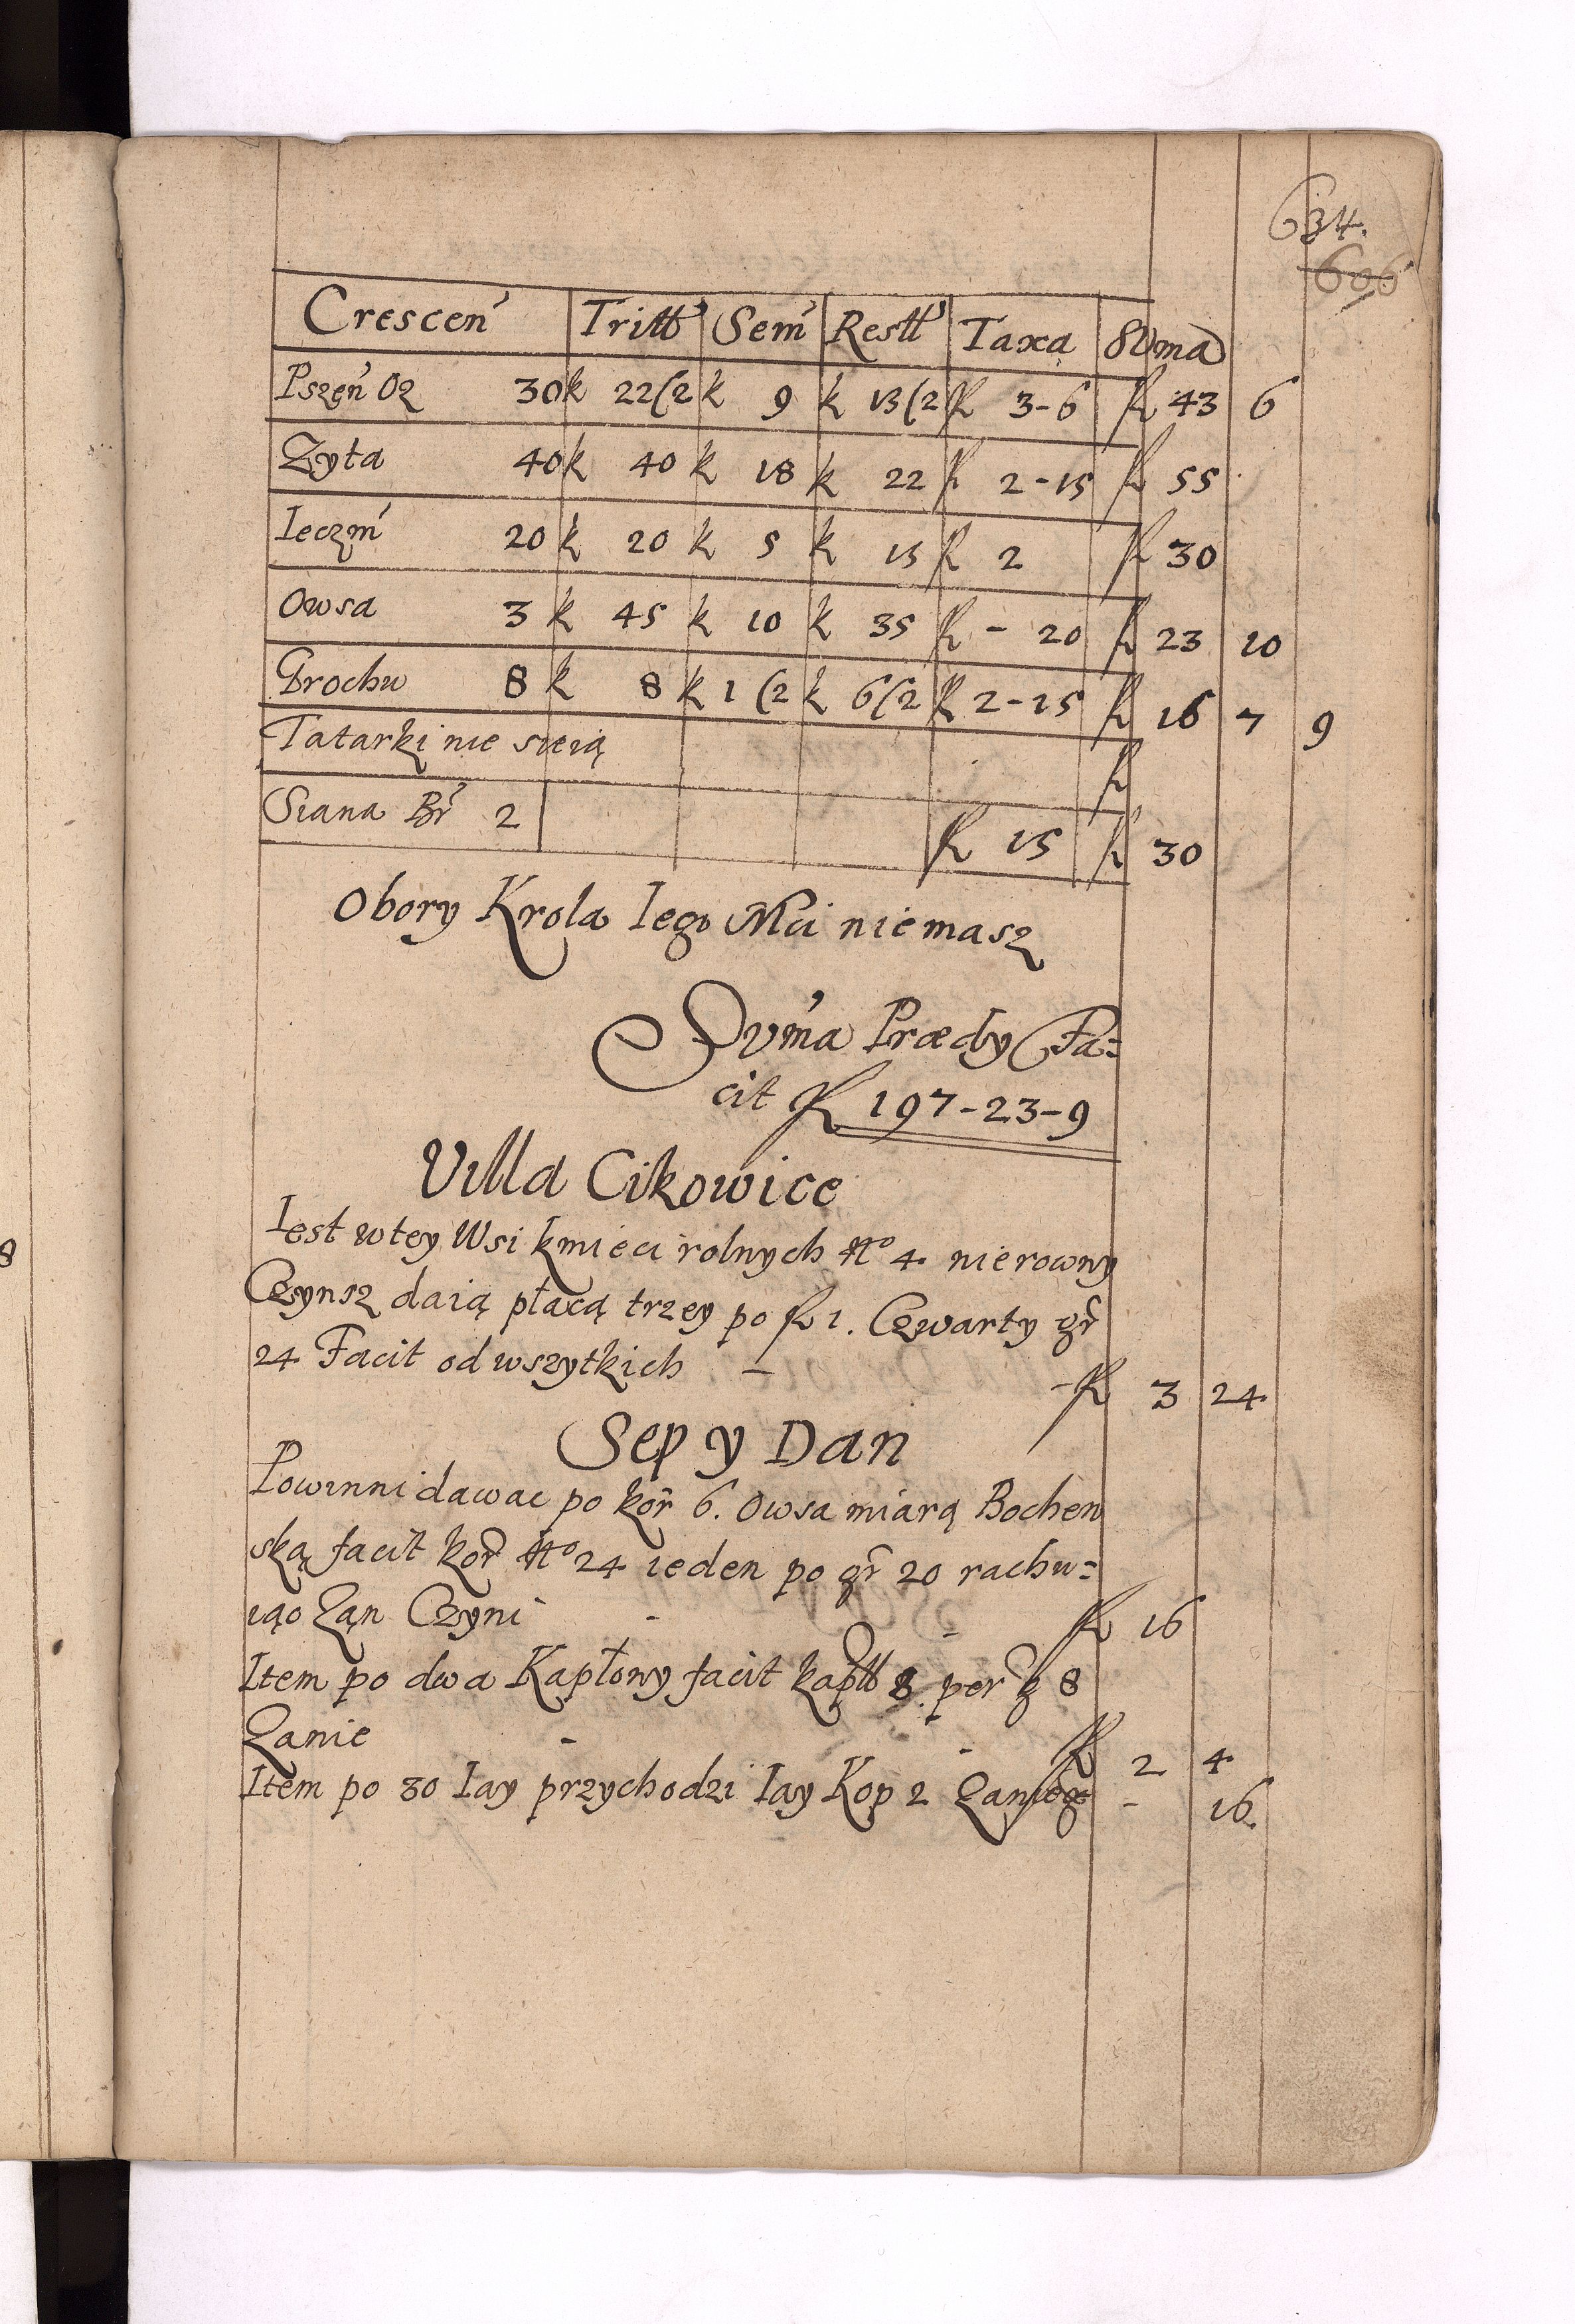 634.
606
Crescen Tritt Sem Restt Taxa Suma
Pszen Oz 30 k 22(2 k 9 k 13(2 fl 3-6 fl 43 6
Zyta 40 k 40 k 18 k 22 fl 2-15 fl 55
Ieczm 20 k 20 k 5 k 15 fl 2 fl 30
Owsa 3 k 45 k 10 k 35 fl - 20 fl 23 10
Grochu 8 k 8 k 1(2 k 6(2 fl 2-15 fl 16 7 9
Tatarki nie sieią fl
Siana Br 2 fl 15 fl 30
Obory Krola Iego Mci niemasz
Suma Prædy Fa=
cit fl 197-23-9
Villa Cikowice
Iest wtey Wsi kmieci rolnych No 4. nierowny
Czynsz daią płacą trzey po fl 1. Czwarty gr
24 Facit od wszytkich - - fl 3 24
Sep y Dan
Powinni dawac po kor 6. Owsa miarą Bochen
ską facit kor No 24 ieden po gr 20 rachu=
iąc Zan Czyni - - fl 16
Item po dwa Kapłony facit kaptt 8. per g 8
Zanie - - fl 2 4
Item po 30 Iay przychodzi Iay Kop 2 Zanie - 16.
8